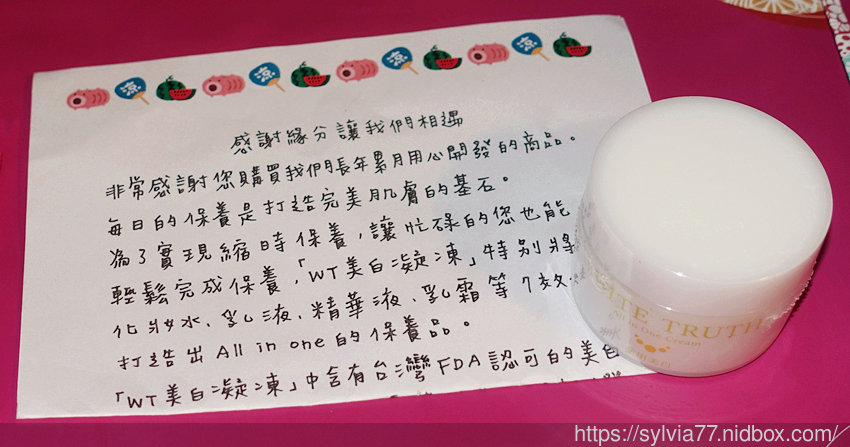 涼 涼 涼 涼
感謝緣分讓我們相遇
非常感謝您購買我們長年累月用心開發的商品。
每日的保養是打造完美肌膚的基石。
為了實現縮時保養,讓忙碌的您也能
輕鬆完成保養,「WT美白凝凍」特別將
化妝水、乳液、精華液、乳霜等7效
打造出All in one的保養品。
「WT美白凝凍」中含有台灣FDA認可的美白
ITE TRUTH
All in One Cream
https://sylvia77.nidbox.com/